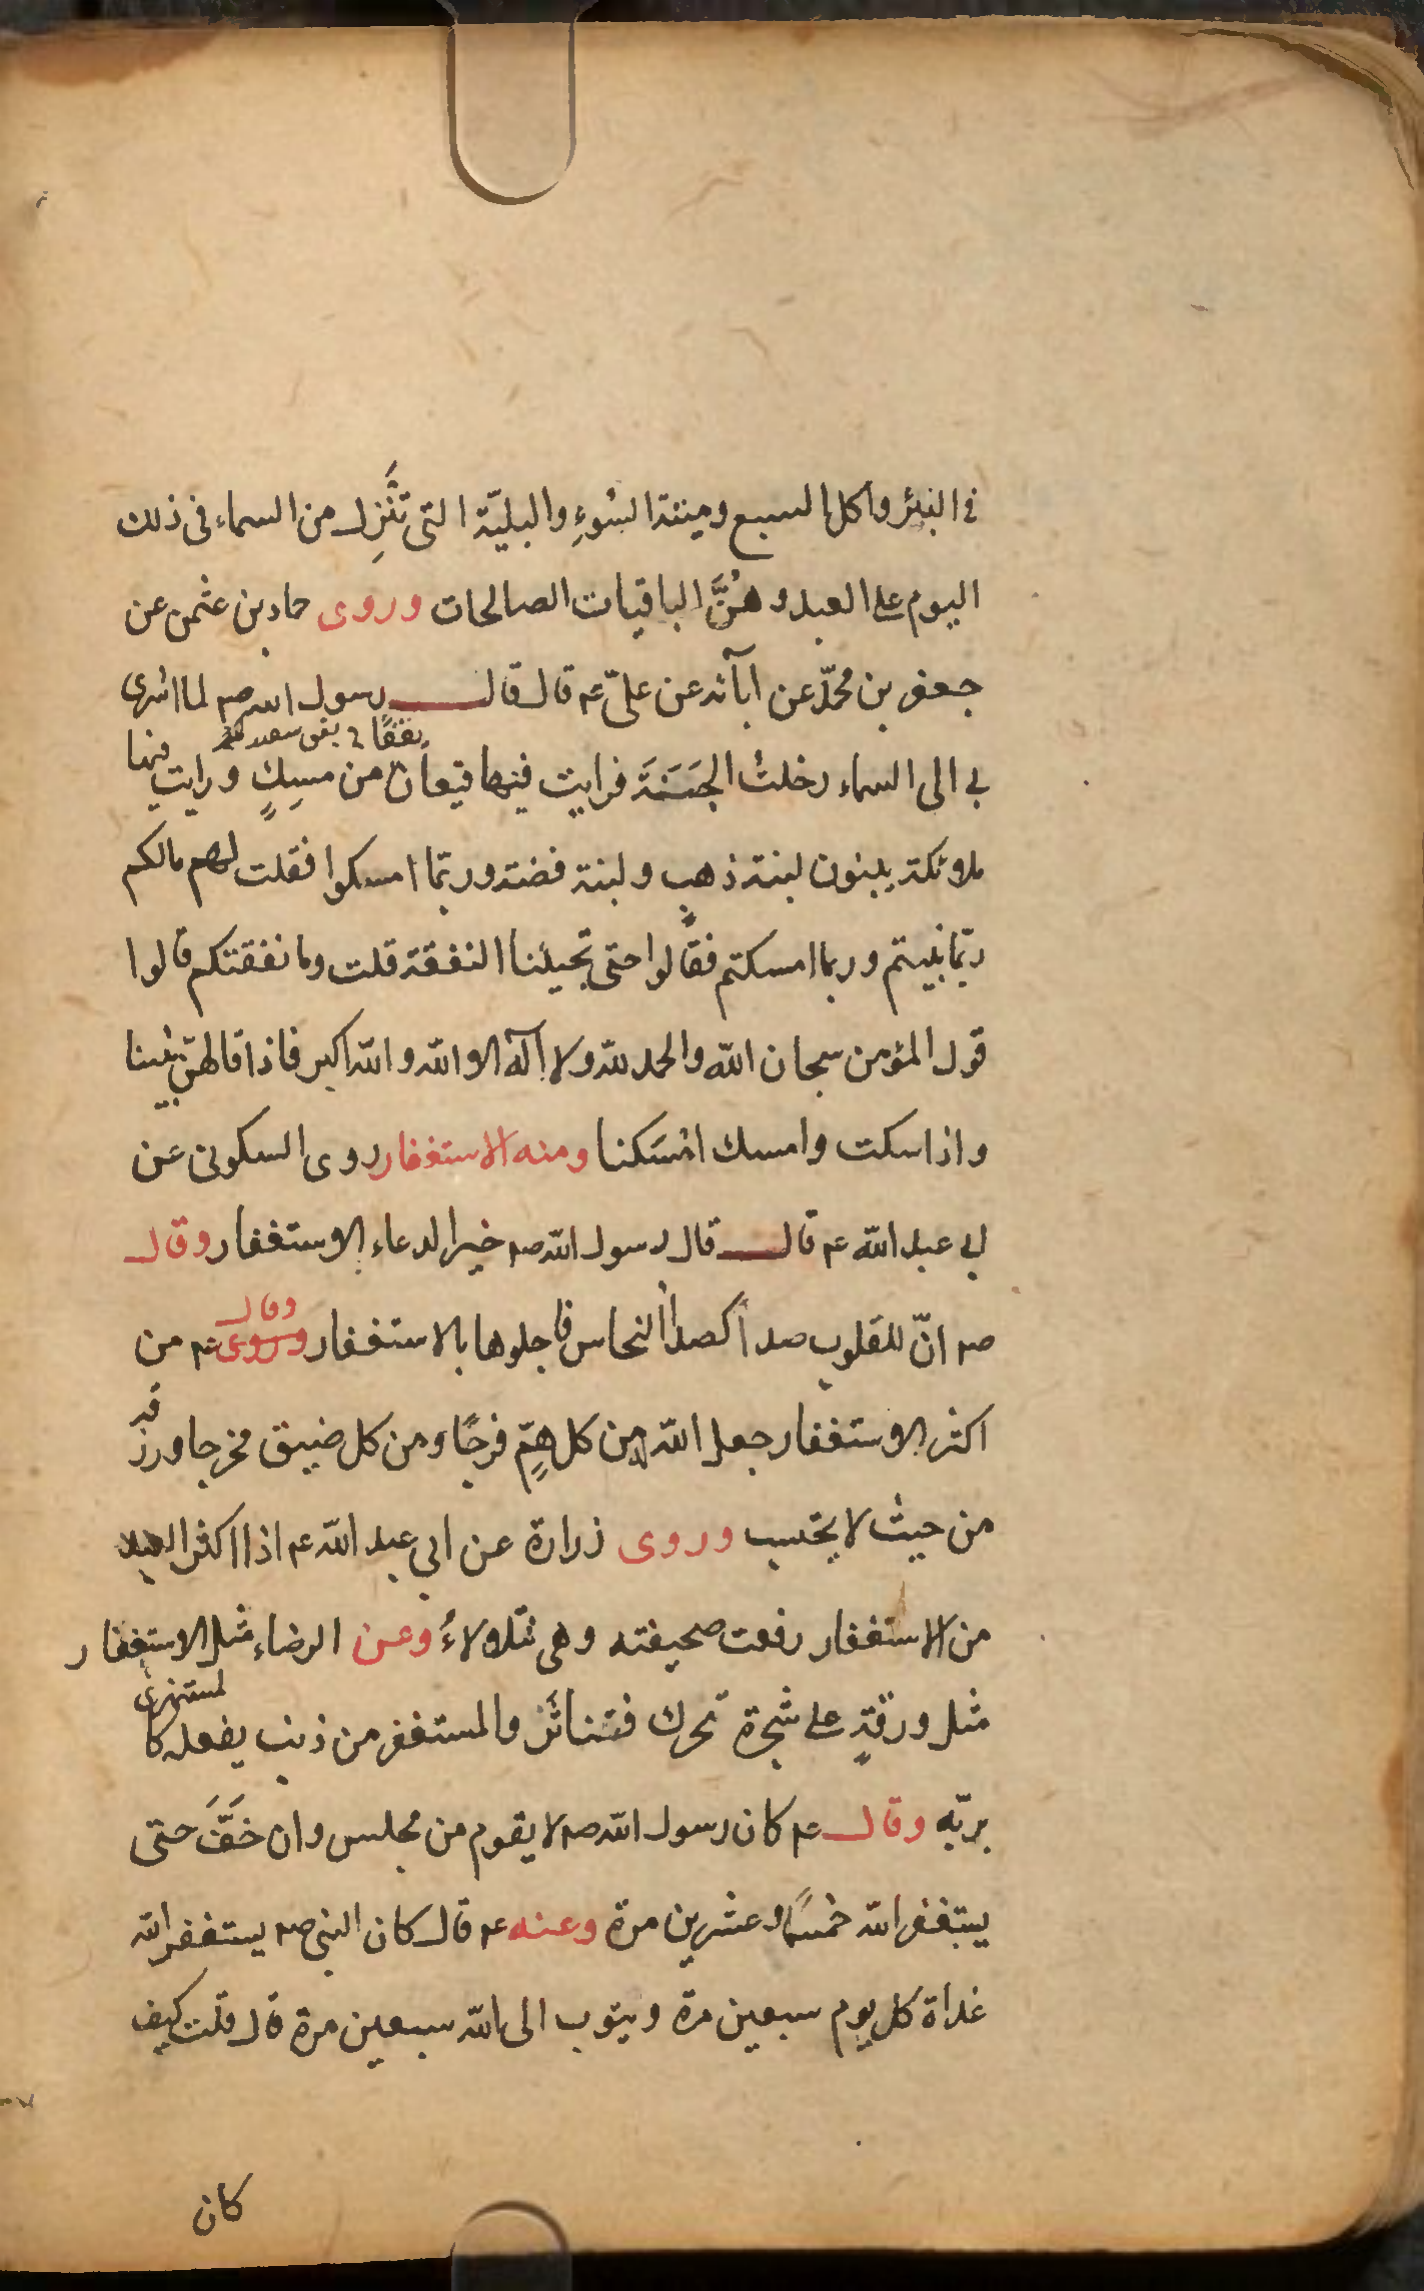 في البئر واكل السبع وميتة السُوءِ والبليّة التى تنزِل من السماء فى ذلك
اليوم على العبد وهُنَّ الباقيات الصالحات وروى حماد بن عثمن عن
جعفر بن محمدّ عن ابآئه عن علىّ ع قال قال رسول الله ص لما اسرى
بي الى السماء دخلتُ الجَنَةَ فرايت فيها قيعان من مسكٍ ورايت فيها
يققًا في
ملائكة يبنون لبنة ذهبٍ ولبنة فضة وربّما امسكوا فقلت لهم مالكم
ربّما بنيتم وربما امسكتم فقالوا حتى تجيئنا النفقة قلت وما نفقتكم قالوا
قول المؤمن سبحان الله والحمد لله ولا اله الا الله والله اكبر فاذا قالهنّ بنينا
واذا سكت وامسك امْسَكنا ومنه الاستغفار روى السكونى عن
ابي عبد الله ع قال قال رسول الله ص خير الدعاء الاستغفار وقال
ص انّ للقلوب صدأ كصدأ النحاس فاجلوها بالاستغفار وروى وقال ع من
اكثر الاستغفار جعل الله من كل همٍّ فرجًا ومن كل ضيق مخرجا ورزقه
من حيث لا يحتسب وروى زرارة عن ابي عبد الله ع اذا اكثر العبد
من الاستغفار رفعت صحيفته وهى تتلالاءُ وعن الرضاء مثل الاستغفار
مثل ورقةٍ على شجرة تحرك فتناثَر والمستغفر من ذنب يفعله كالمستهزئ
بربّه وقال ع كان رسول الله ص لا يقوم من مجلس وان خَفَّ حتى
يستغفر الله خمسًا وعشرين مرة وعنه ع قال كان النبى ص يستغفر الله
غداة كل يوم سبعين مرة ويتوب الى الله سبعين مرة قال قلت كيف
كان